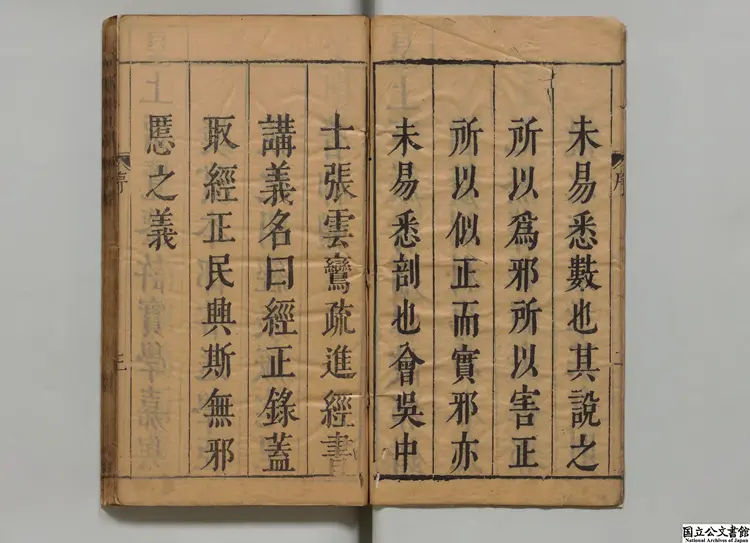 未易悉數也其說之
所以爲邪所以害正
所以似正而實邪亦
未易悉剖也會吳中
士張雲鸞疏進經書
講義名曰經正錄蓋
取經正民興斯無邪
慝之義
序
二
序
三
国立公文書館
National Archives of Japan